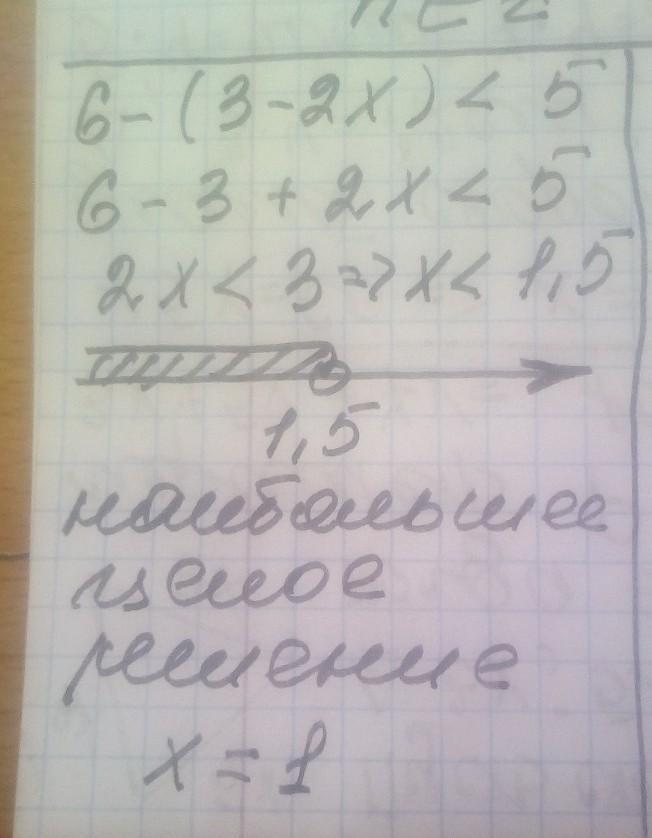 6 - (3 - 2x) < 5
6 - 3 + 2x < 5
2x < 3 => x < 1,5
1,5
наибольшее
целое
решение
x = 1